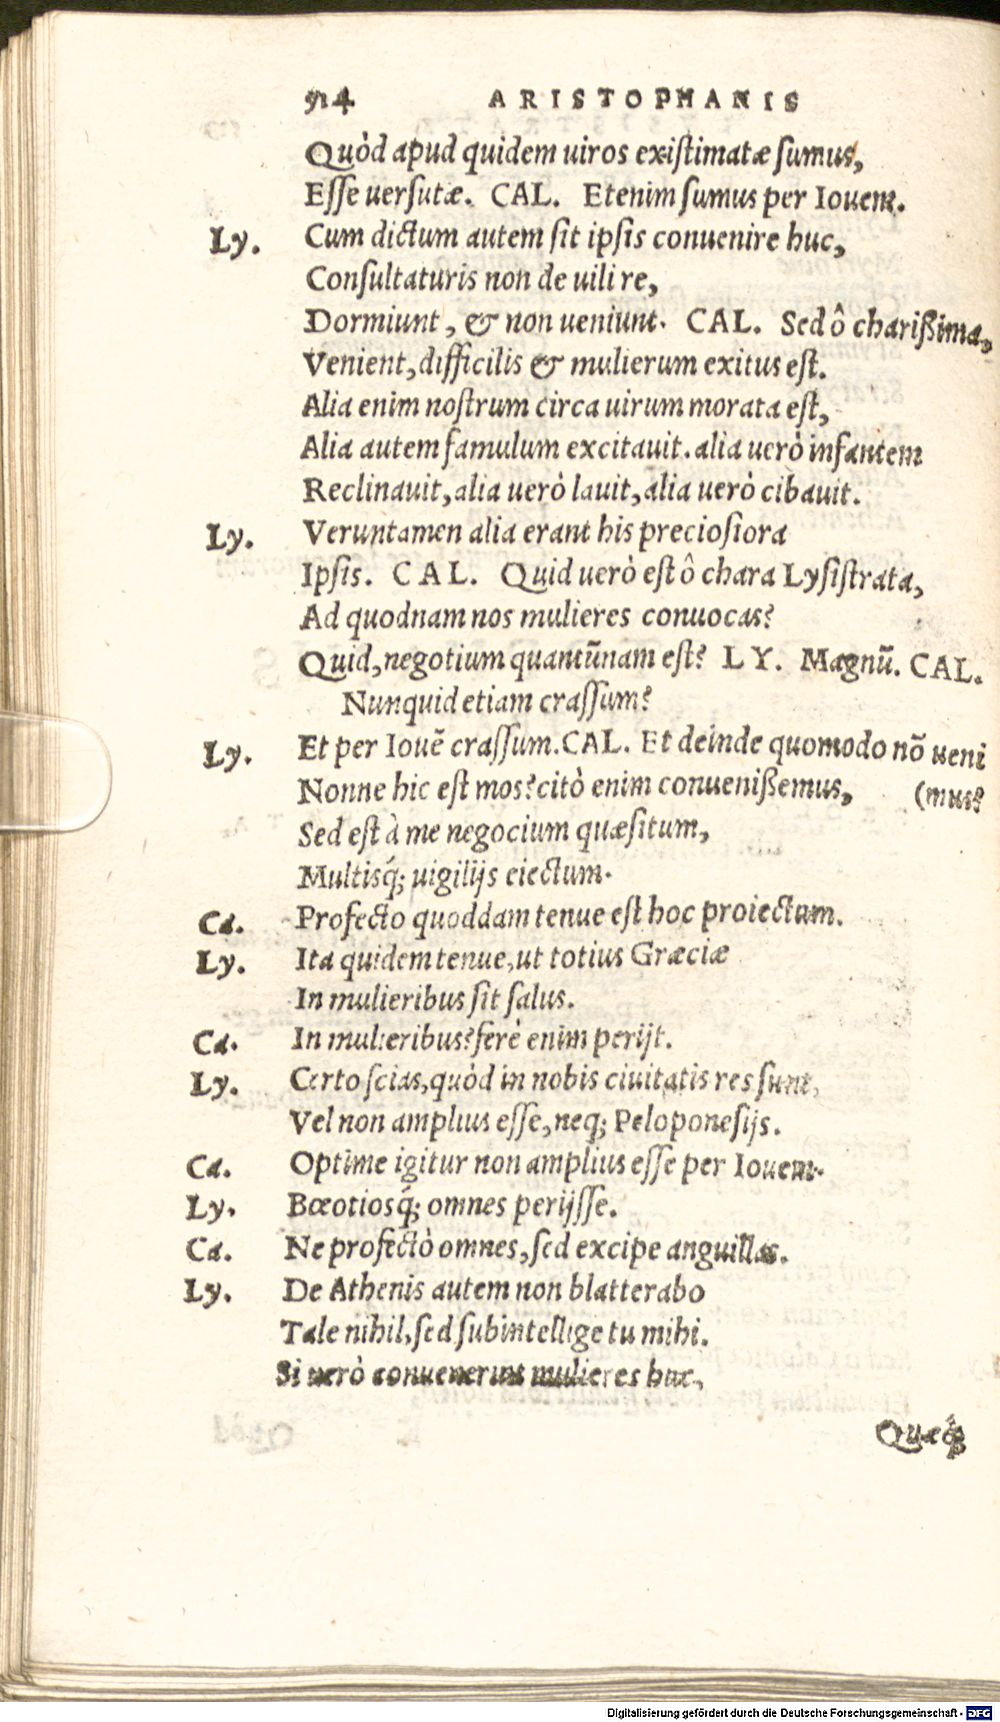 514 ARISTOPHANIS
Quòd apud quidem uiros existimatæ sumus,
Esse uersutæ. CAL. Etenim sumus per Iouem.
Ly. Cum dictum autem sit ipsis conuenire huc,
Consultaturis non de uili re,
Dormiunt, & non ueniunt. CAL. Sed ô charißima,
Venient, difficilis & mulierum exitus est.
Alia enim nostrum circa uirum morata est,
Alia autem famulum excitauit. alia uerò infantem
Reclinauit, alia uerò lauit, alia uerò cibauit.
Ly. Veruntamen alia erant his preciosiora
Ipsis. CAL. Quid uerò est ô chara Lysistrata,
Ad quodnam nos mulieres conuocas?
Quid, negotium quantũnam est? LY. Magnũ. CAL.
Nunquid etiam crassum?
Ly. Et per Iouẽ crassum. CAL. Et deinde quomodo nõ ueni
Nonne hic est mos? citò enim conuenißemus, (mus?
Sed est à me negocium quæsitum,
Multisq́; uigilijs eiectum.
Ca. Profecto quoddam tenue est hoc proiectum.
Ly. Ita quidem tenue, ut totius Græciæ
In mulieribus sit salus.
Ca. In mulieribus? ferè enim perijt.
Ly. Certo scias, quòd in nobis ciuitatis res sunt,
Vel non amplius esse, neq; Peloponesijs.
Ca. Optime igitur non amplius esse per Iouem.
Ly. Bœotiosq́; omnes perijsse.
Ca. Ne profectò omnes, sed excipe anguillas.
Ly. De Athenis autem non blatterabo
Tale nihil, sed subintellige tu mihi.
Si uerò conuenerint mulieres huc,
Quæq́;
Digitalisierung gefördert durch die Deutsche Forschungsgemeinschaft - DFG